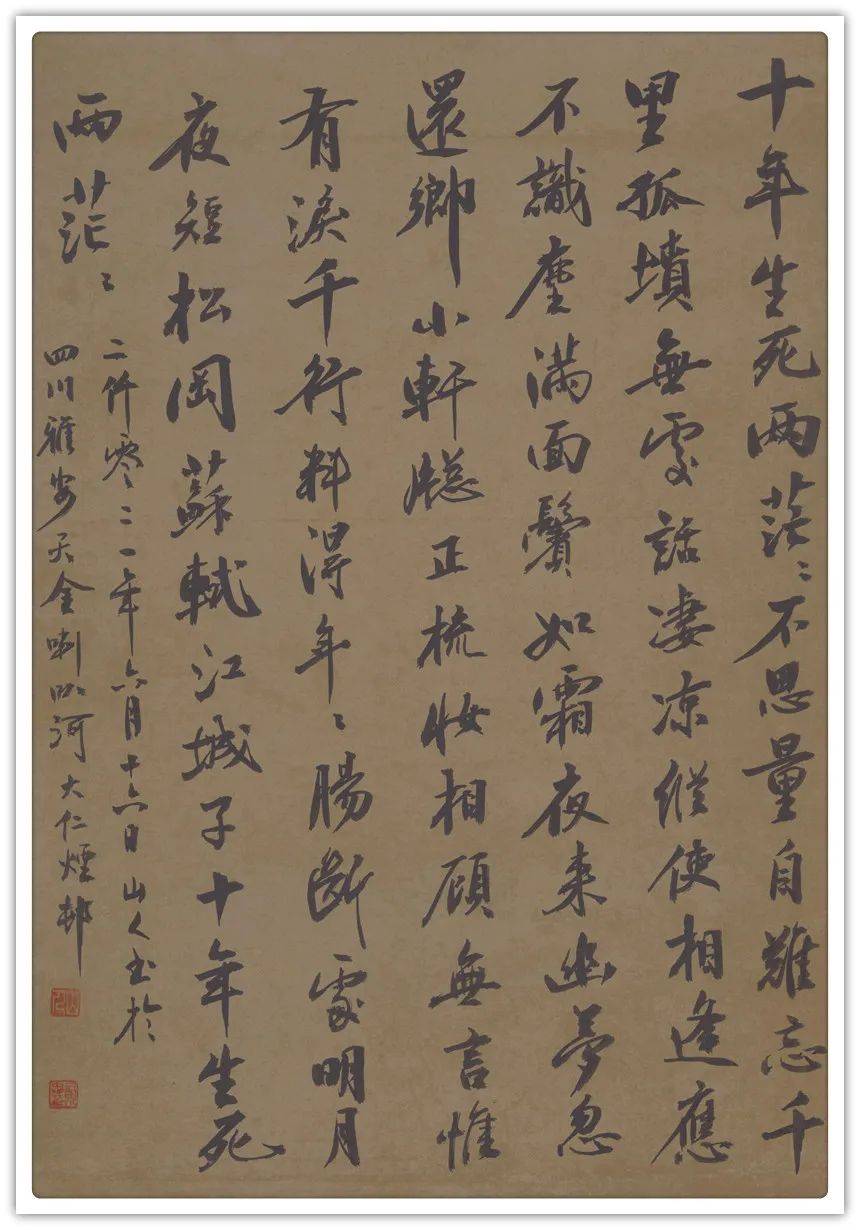 十年生死兩茫〻不思量自難忘千
里孤墳無處話淒涼縱使相逢應
不識塵滿面鬢如霜夜來幽夢忽
還鄉小軒牕正梳妝相顧無言惟
有淚千行料得年〻腸斷處明月
夜短松岡蘇軾江城子十年生死
兩茫〻
二仟零二一年六月十六日山人书於
四川雅安天全喇叭河大仁煙邨